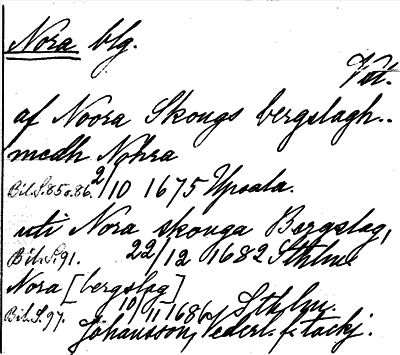 Nora blg.
Vstl.
af Noora Skougs bergslagh..
medh Nohra
Bil. S. 85 o. 86. 2/10 1675 Upsala.
uti Nora skouga Bergslag,
Bil. S. 91. 22/12 1682 Sthlm
Nora [bergslag]
Bil. S. 97. 10/11 1686 Sthlm.
Johansson, Vederl. f. tackj.